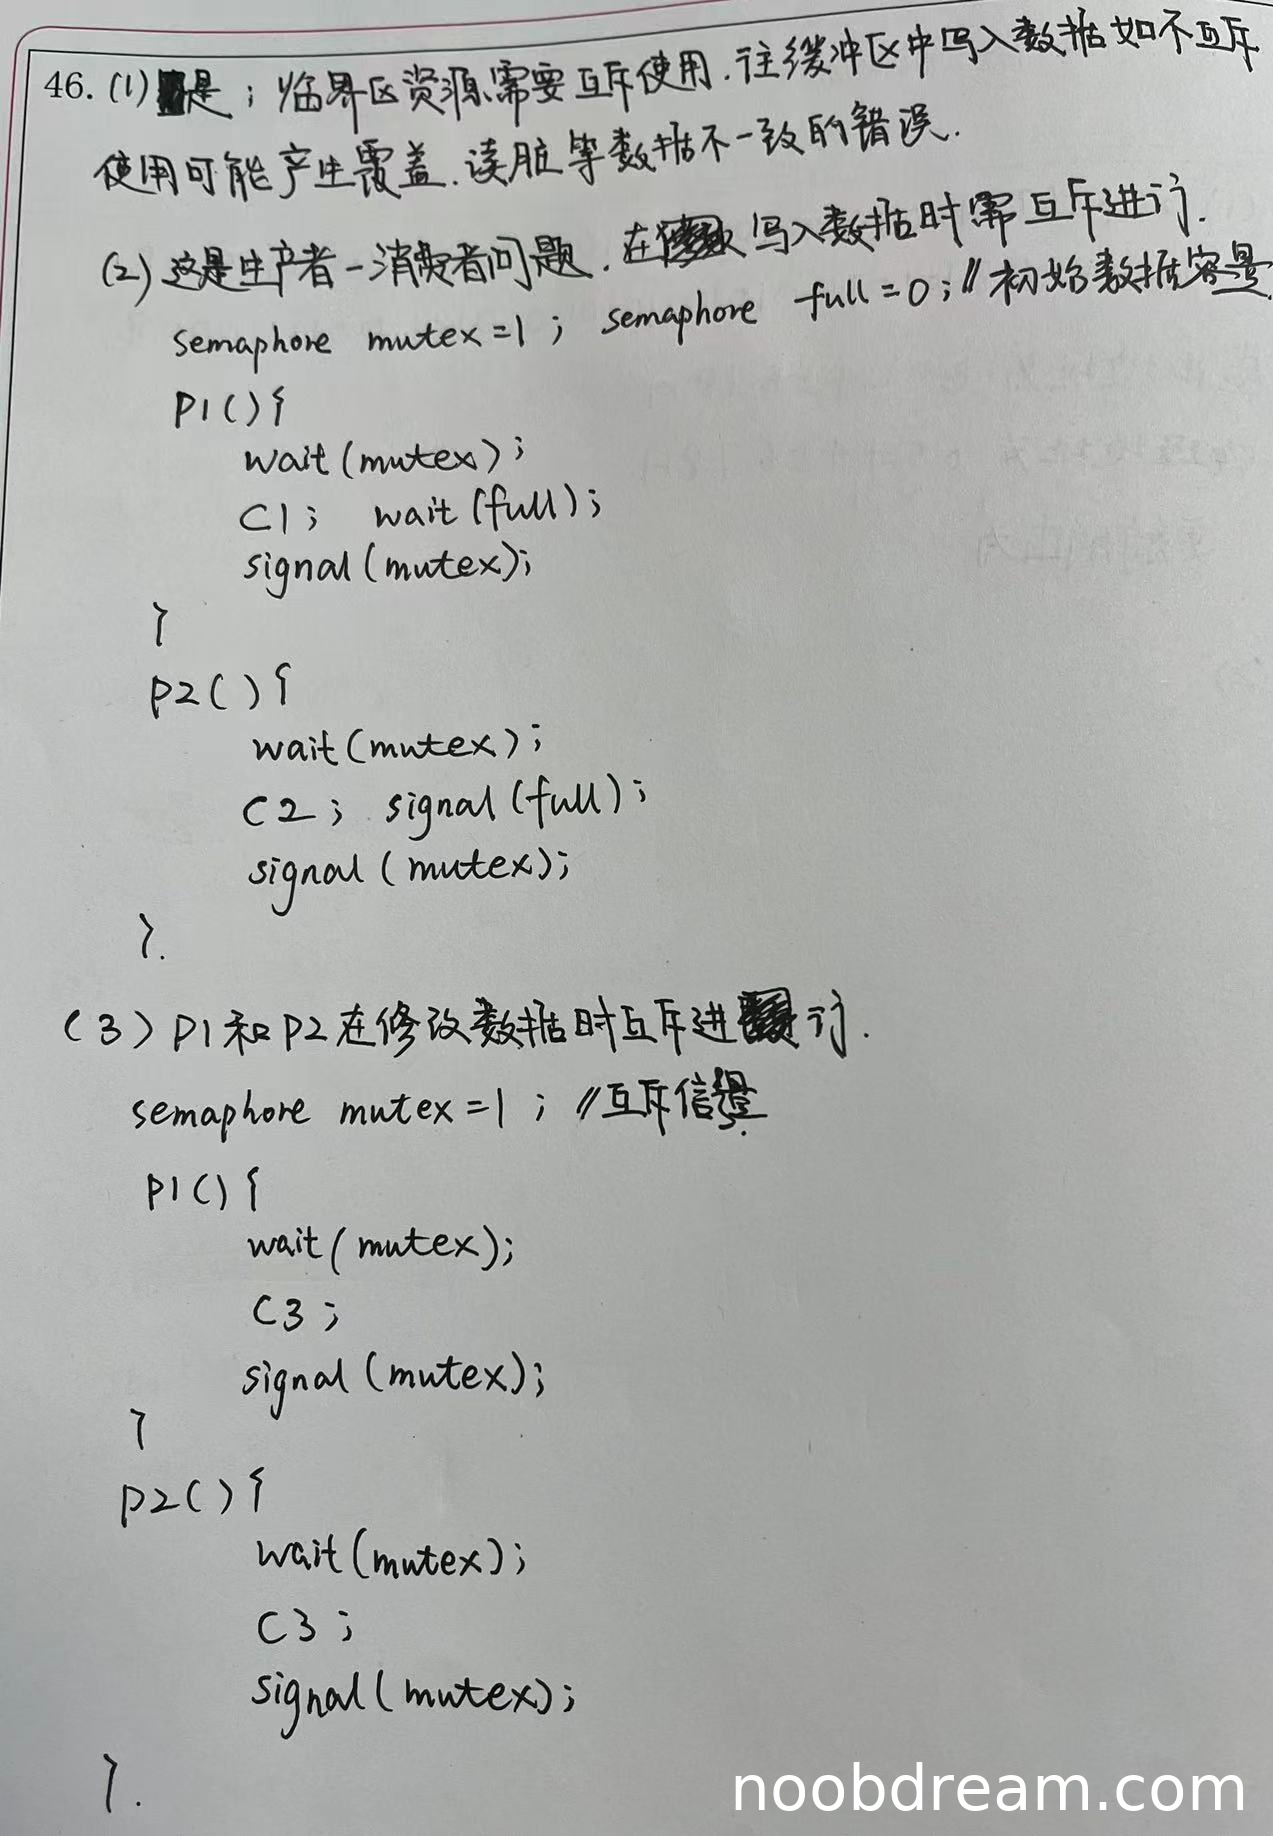 46. (1) 是；临界区资源需要互斥使用.往缓冲区中写入数据如不互斥
使用可能产生覆盖.读脏等数据不一致的错误.
(2) 这是生产者-消费者问题.在 写入数据时需互斥进行.
semaphore mutex=1; semaphore full=0; //初始数据容量
P1(){
wait(mutex);
C1; wait(full);
signal(mutex);
}
P2(){
wait(mutex);
C2; signal(full);
signal(mutex);
}.
(3) P1和P2在修改数据时互斥进行.
semaphore mutex=1; //互斥信量
P1(){
wait(mutex);
C3;
signal(mutex);
}
P2(){
wait(mutex);
C3;
signal(mutex);
}.
noobdream.com